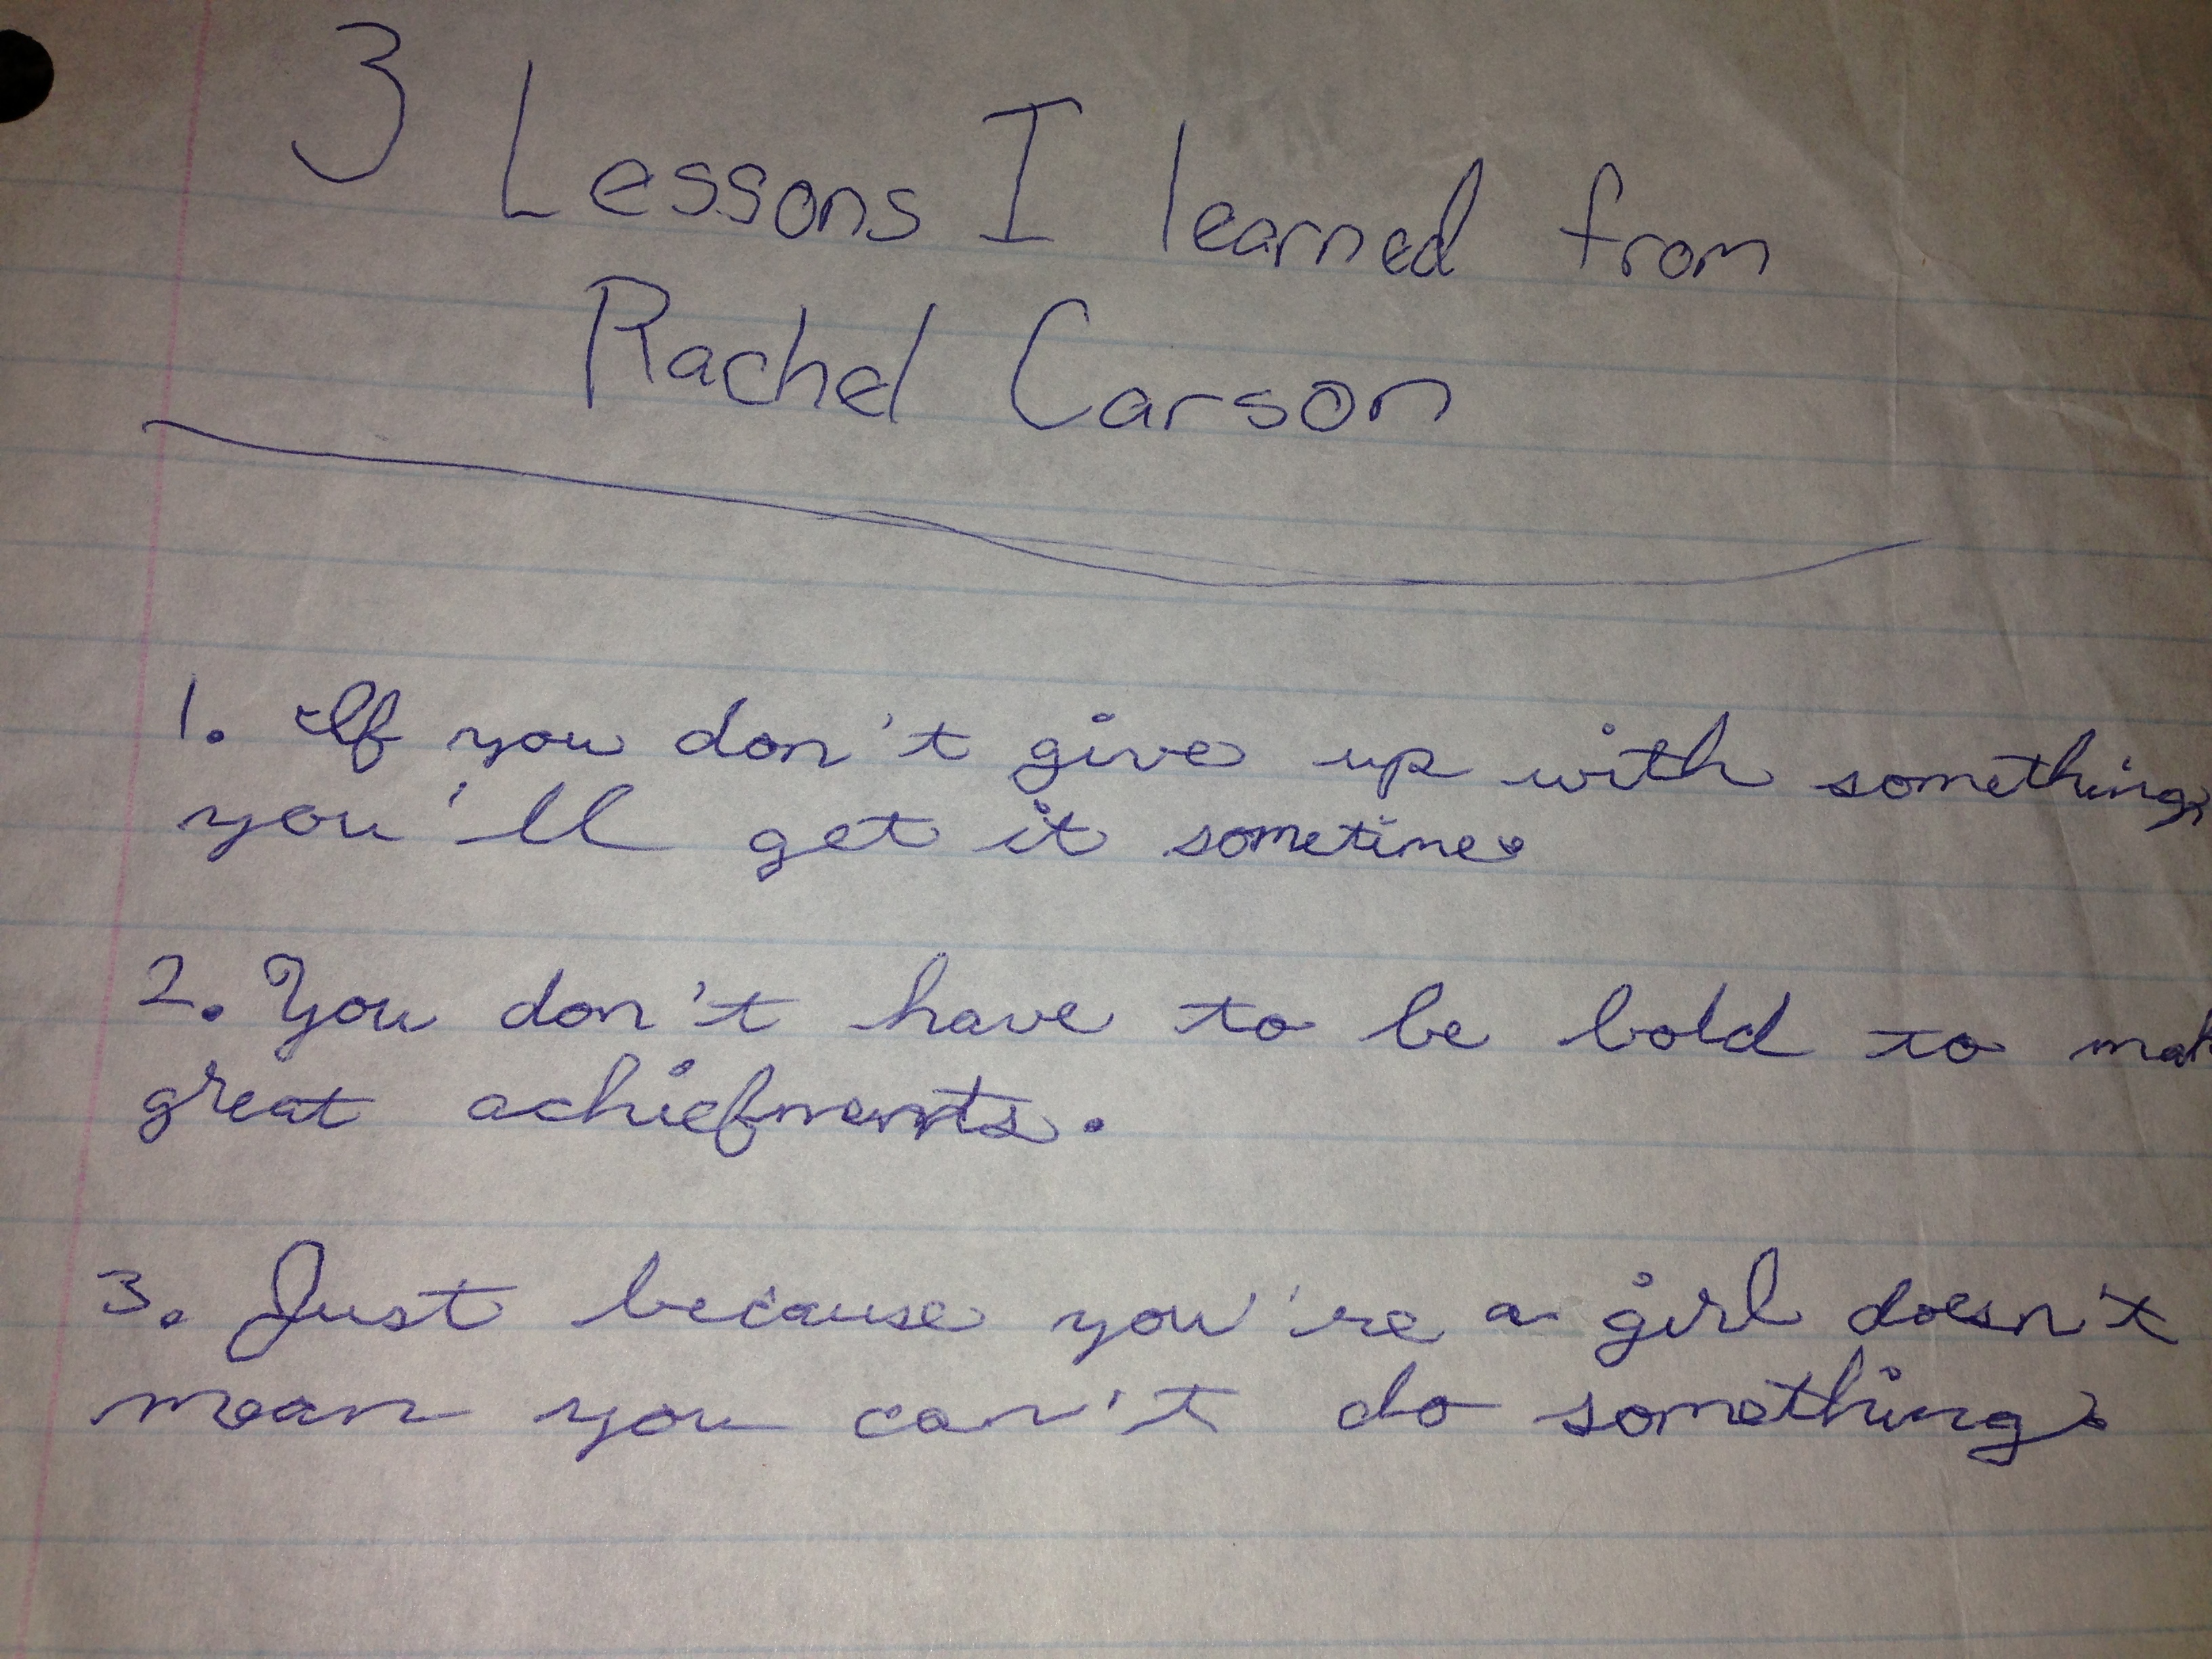 3 Lessons I learned from
Rachel Carson
1. If you don't give up with something,
you'll get it sometime.
2. You don't have to be bold to mak
great achiefments.
3. Just because you're a girl doesn't
mean you can't do something.